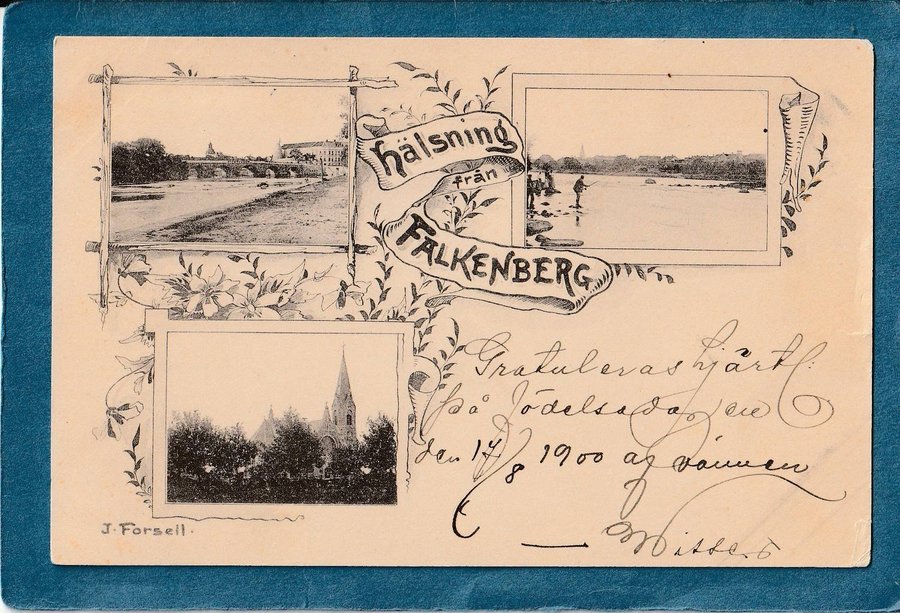 Hälsning
från
FALKENBERG
Gratuleras hjärtl:
på födelsedagen
den 17/8 1900 af vännen
J. Forsell.